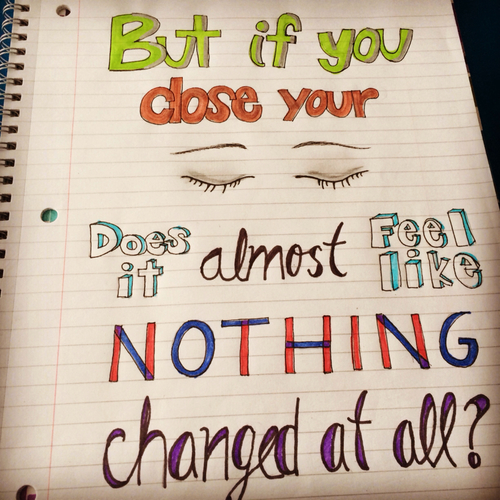 But if you
close your
Does it almost Feel like
NOTHING
changed at all?